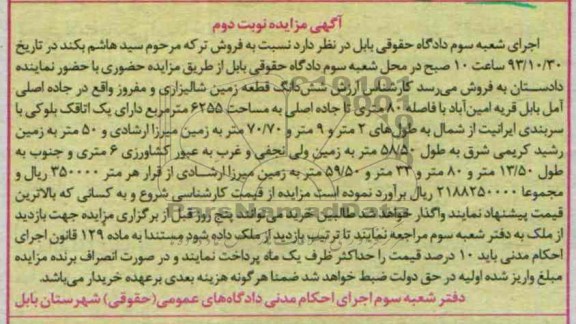 آگهی مزایده نوبت دوم
اجرای شعبه سوم دادگاه حقوقی بابل در نظر دارد نسبت به فروش ترکه مرحوم سید هاشم بکند در تاریخ
۹۳/۱۰/۳۰ ساعت ۱۰ صبح در محل شعبه سوم دادگاه حقوقی بابل از طریق مزایده حضوری با حضور نماینده
دادستان به فروش می‌رسد کارشناس ارزش شش‌دانگ قطعه زمین شالیزاری و مفروز واقع در جاده اصلی
آمل بابل قریه امین‌آباد با فاصله ۸۰ متری تا جاده اصلی به مساحت ۶۲۵۵ مترمربع دارای یک اتاقک بلوکی با
سربندی ایرانیت از شمال به طول‌های ۲ متر و ۹ متر و ۷۰/۷۰ متر به زمین میرزا ارشادی و ۵۰ متر به زمین
رشید کریمی شرق به طول ۵۸/۵۰ متر به زمین ولی نجفی و غرب به عبور کشاورزی ۶ متری و جنوب به
طول ۱۳/۵۰ متر و ۸۰ متر و ۳۳ متر و ۵۹/۵۰ متر به زمین میرزا ارشادی از قرار هر متر ۳۵۰۰۰۰ ریال و
مجموعا ۲۱۸۸۲۵۰۰۰۰ ریال برآورد نموده است مزایده از قیمت کارشناسی شروع و به کسانی که بالاترین
قیمت پیشنهاد نمایند واگذار خواهد شد طالبین خرید می‌توانند پنج روز قبل از برگزاری مزایده جهت بازدید
از ملک به دفتر شعبه سوم مراجعه نمایند تا ترتیب بازدید از ملک داده شود مستندا به ماده ۱۲۹ قانون اجرای
احکام مدنی باید ۱۰ درصد قیمت را حداکثر ظرف یک ماه پرداخت نمایند و در صورت انصراف برنده مزایده
مبلغ واریز شده اولیه در حق دولت ضبط خواهد شد ضمنا هرگونه هزینه بعدی برعهده خریدار می‌باشد.
دفتر شعبه سوم اجرای احکام مدنی دادگاه‌های عمومی(حقوقی) شهرستان بابل